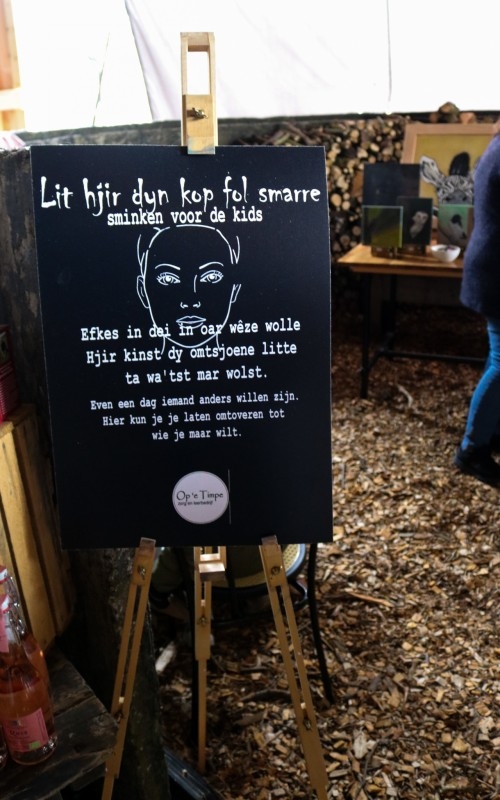 Lit hjir dyn kop fol smarre
sminken voor de kids
Efkes in dei in oar wêze wolle
Hjir kinst dy omtsjoene litte
ta wa'tst mar wolst.
Even een dag iemand anders willen zijn.
Hier kun je je laten omtoveren tot
wie je maar wilt.
Op 'e Timpe